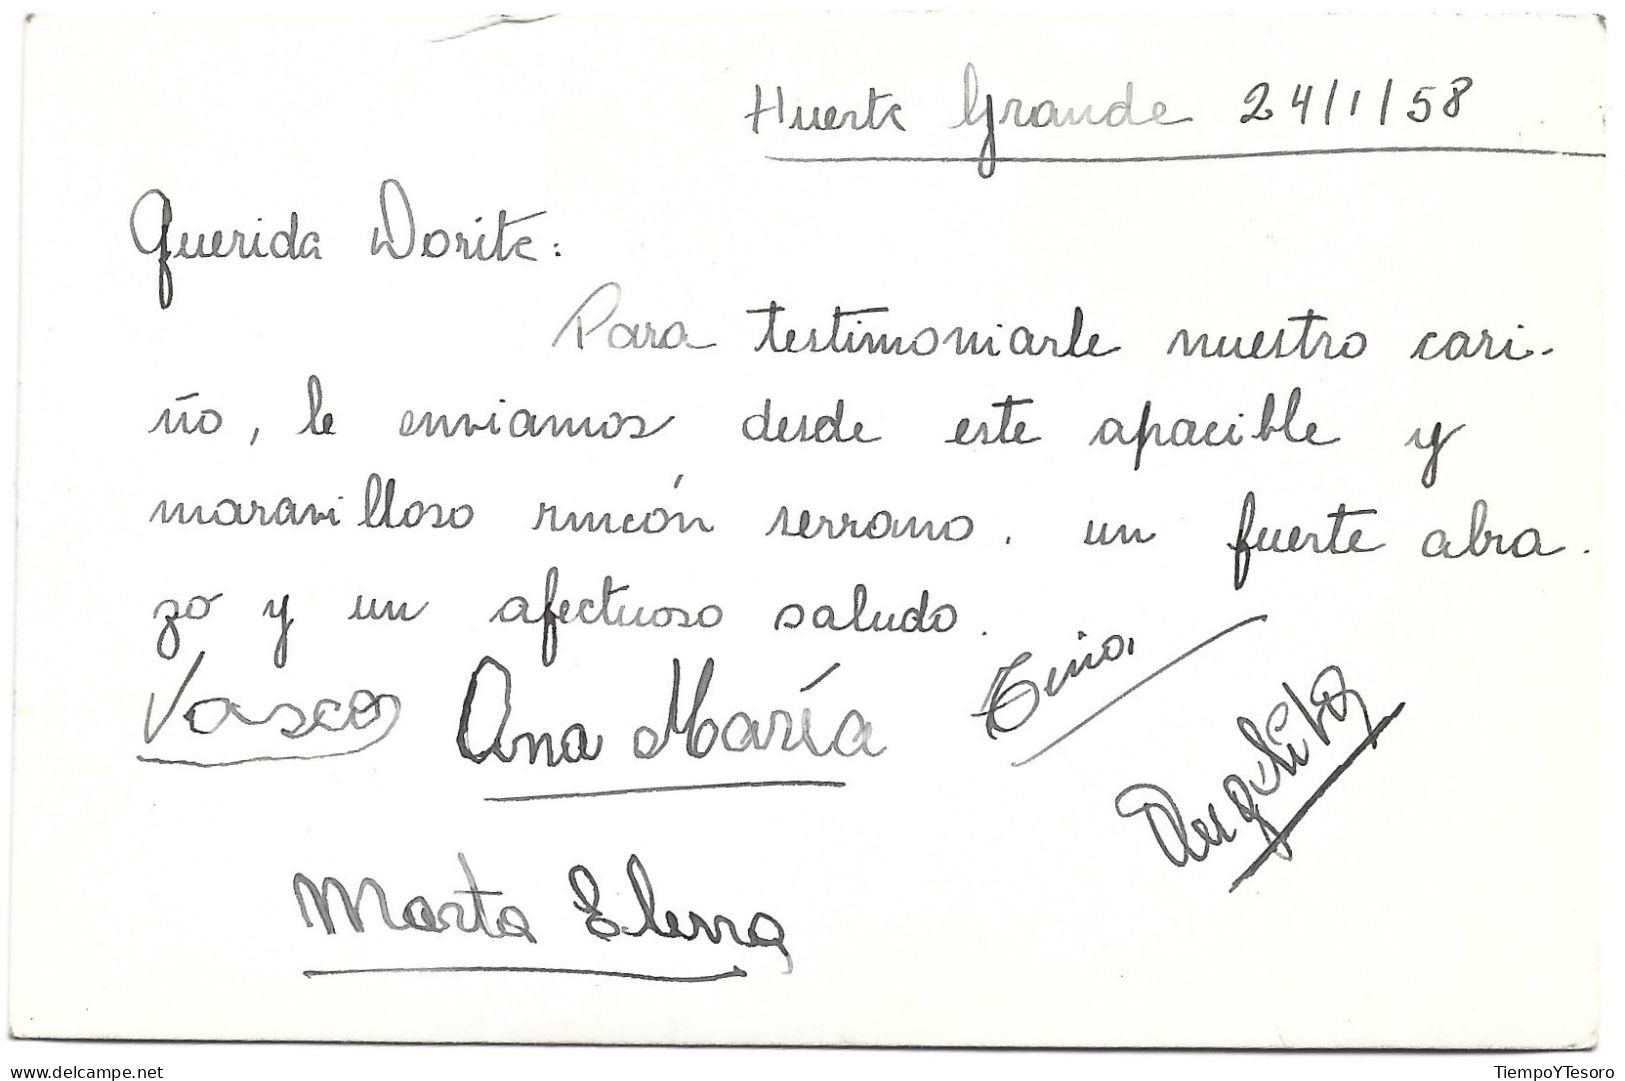 Huerta Grande 24/1/58
Querida Dorita:
Para testimoniarle nuestro cari-
ño, le enviamos desde este apacible y
maravilloso rincón serrano. un fuerte abra-
zo y un afectuoso saludo.
Vasco Ana María
Angelita
Marta Elena
TiempoYTesoro
delcampe.net